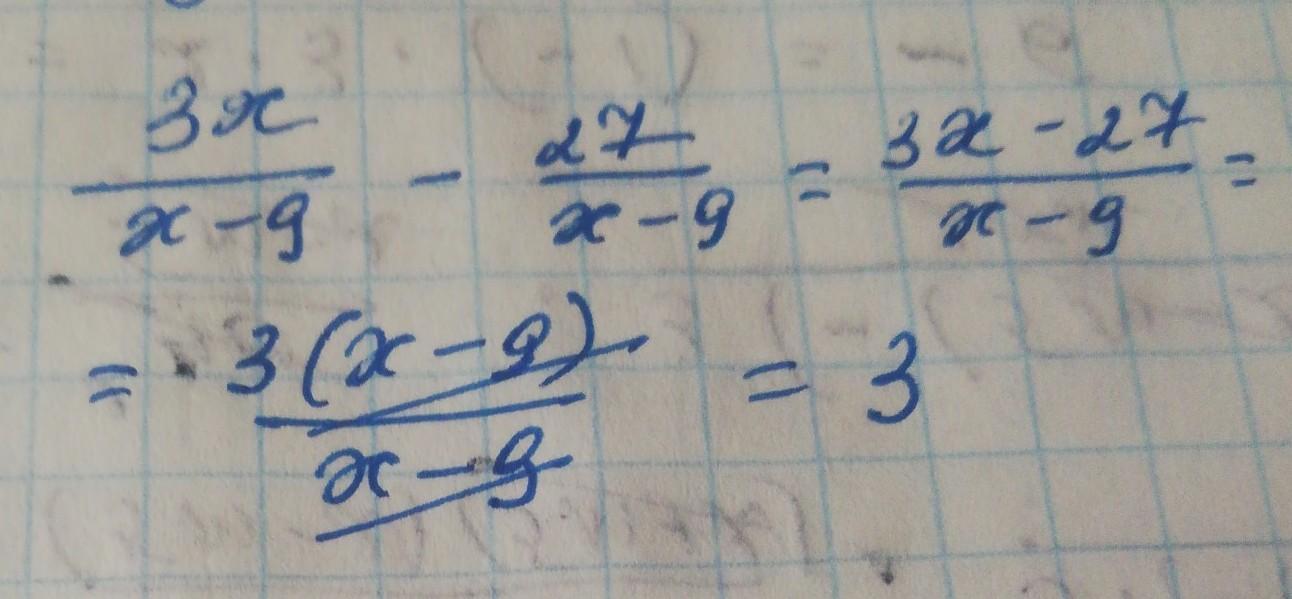 3x/(x-9) - 27/(x-9) = (3x-27)/(x-9) =
= 3(x-9)/(x-9) = 3